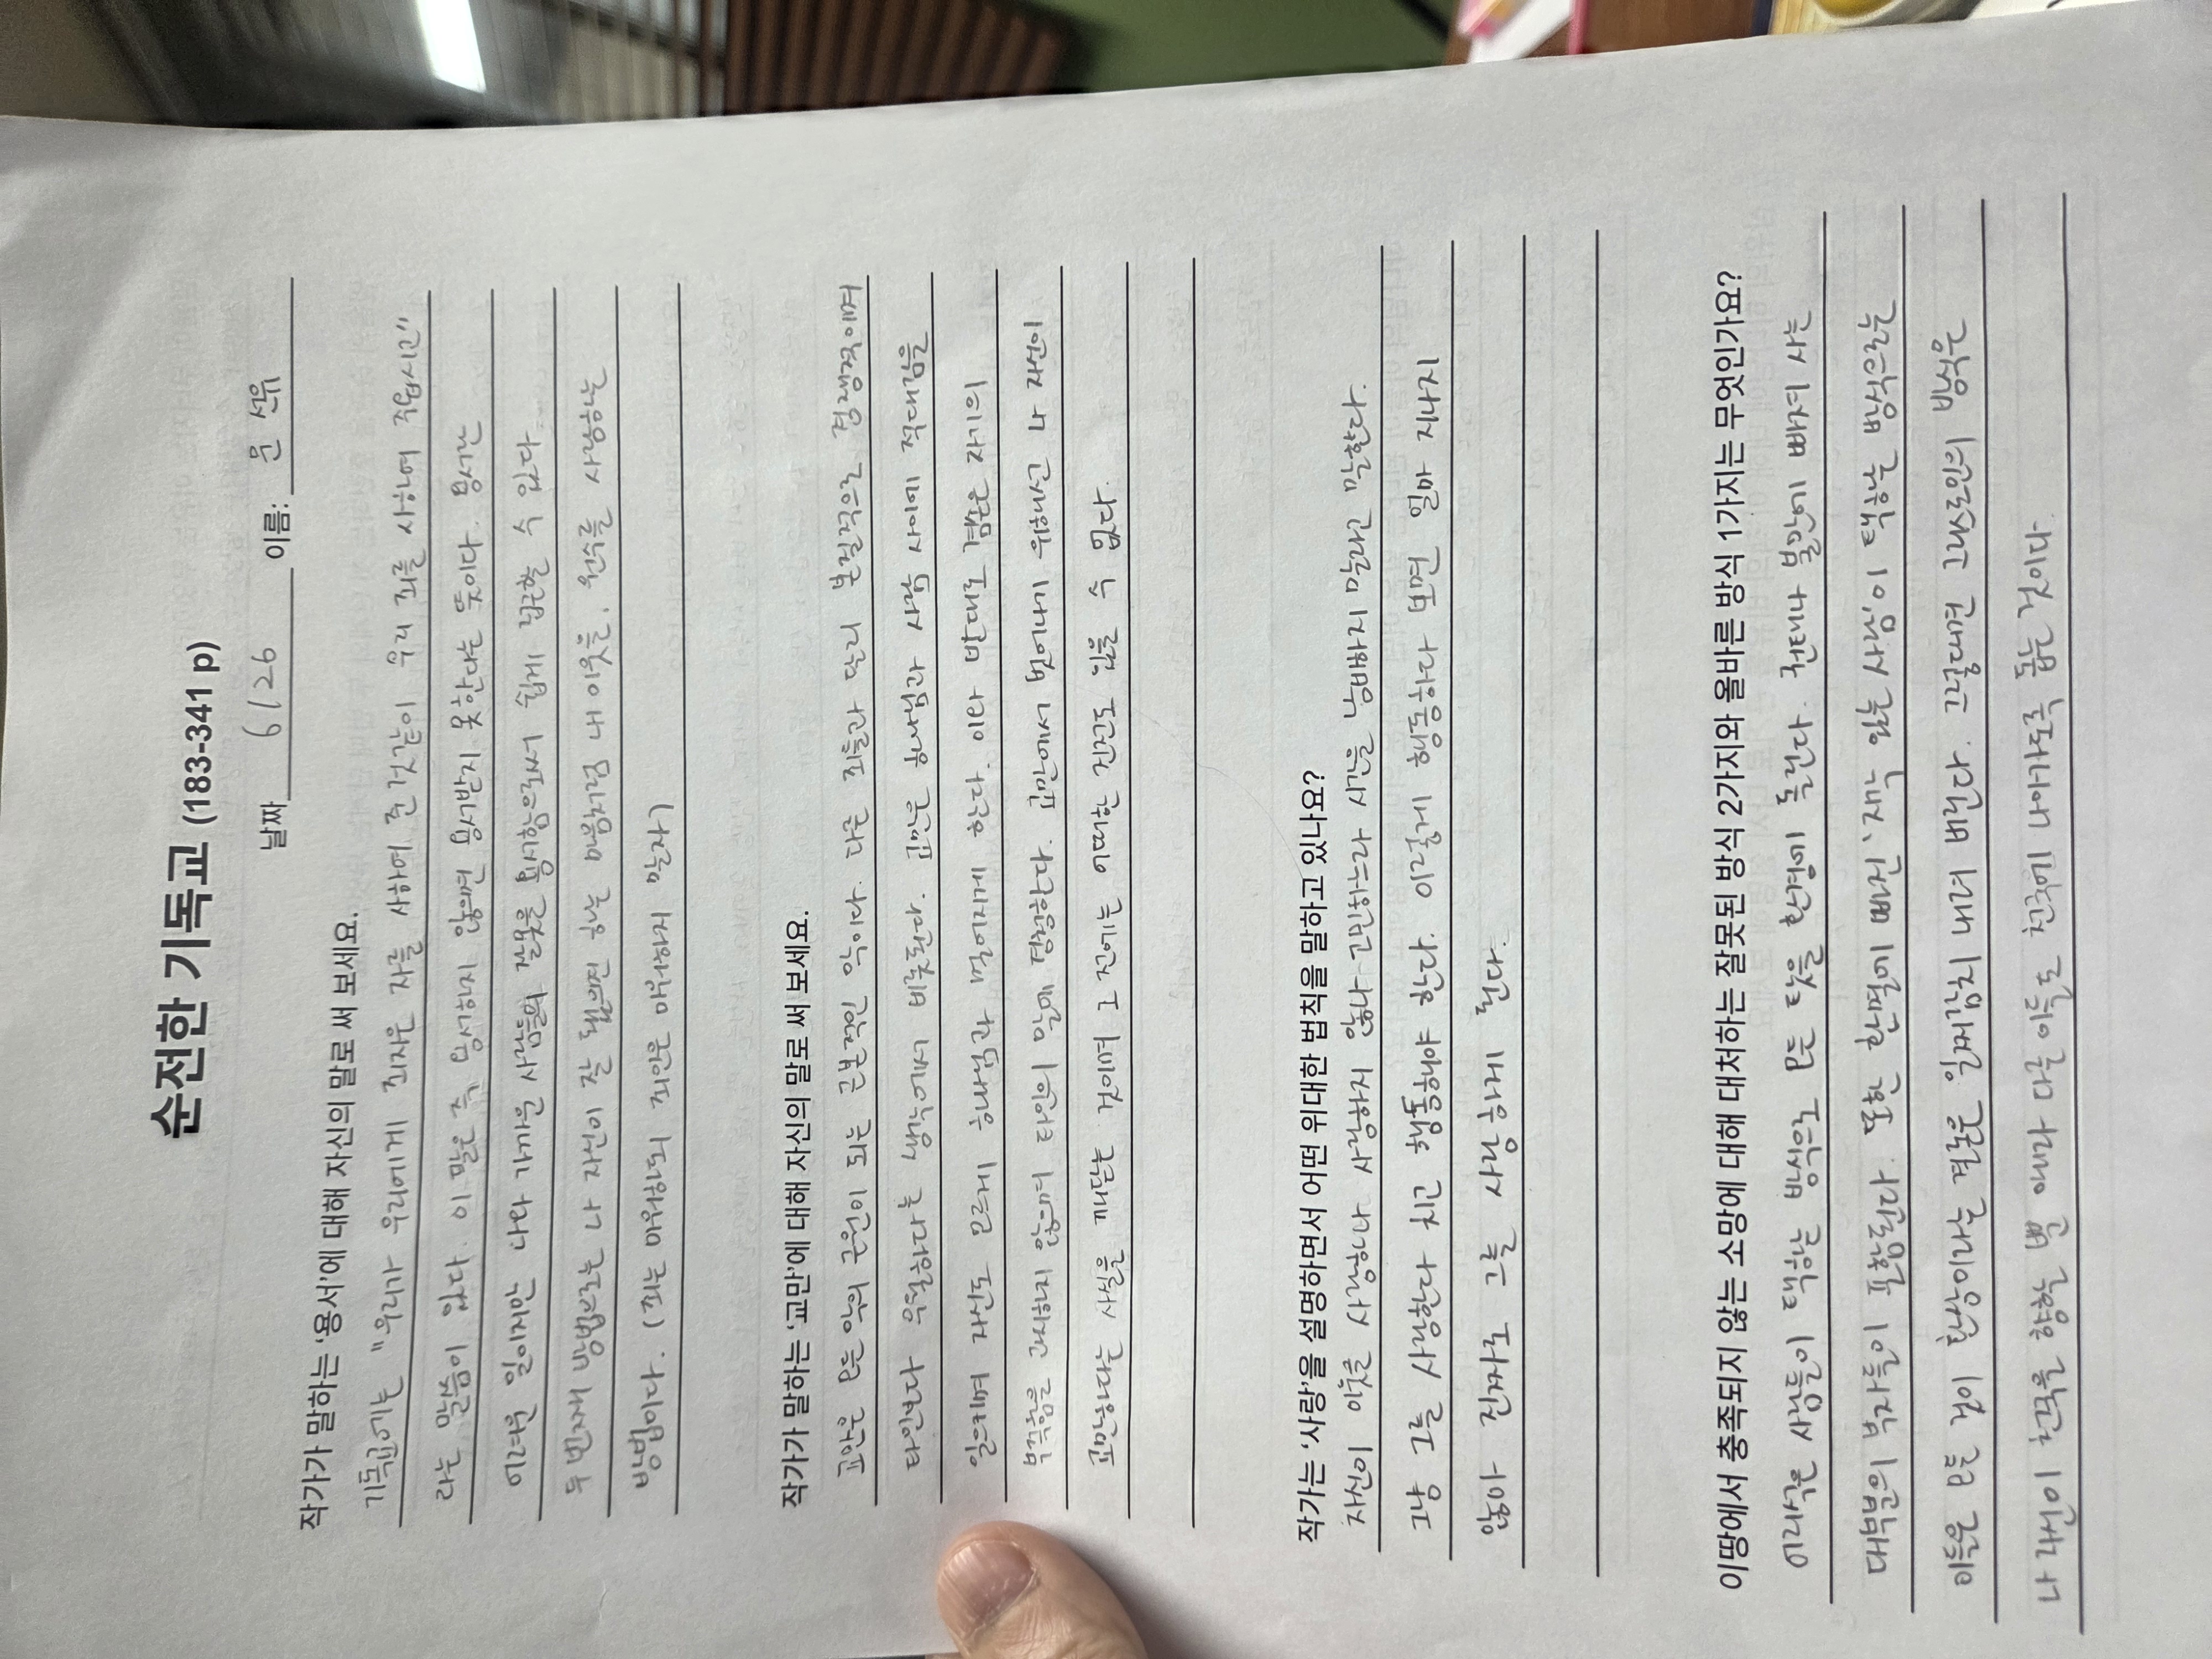 순전한 기독교 (183-341 p)
날짜 6/26 이름: 윤 선유
작가가 말하는 '용서'에 대해 자신의 말로 써 보세요.
기독교에는 "우리가 우리에게 죄지은 자를 사하여 준 것같이 우리 죄를 사하여 주옵시고"
라는 말씀이 있다. 이 말은 즉, 용서하지 않으면 용서받지 못한다는 뜻이다. 용서란
어려운 일이지만 나와 가까운 사람들의 잘못을 용서함으로써 쉽게 접근할 수 있다
두 번째 방법으로는 나 자신이 잘 됐으면 하는 마음처럼 내 이웃을, 원수를 사랑하는
방법이다. (죄는 미워하되 죄인은 미워하지 말라)
작가가 말하는 '교만'에 대해 자신의 말로 써 보세요.
교만은 모든 악의 근원이 되는 근본적인 악이다. 다른 죄들과 달리 본질적으로 경쟁적이며
타인보다 우월하다는 생각에서 비롯된다. 교만은 하나님과 사람 사이에 적대감을
일으키며 자신도 모르게 하나님과 멀어지게 한다. 이와 반대로 겸손은 자기의
부족함을 간과하지 않으며 타인의 말에 경청한다. 교만에서 벗어나기 위해선 나 자신이
교만하다는 사실을 깨닫는 것이며 그 전에는 어떠한 진전도 있을 수 없다.
작가는 '사랑'을 설명하면서 어떤 위대한 법칙을 말하고 있나요?
자신이 이웃을 사랑하나 사랑하지 않나 고민하느라 시간을 낭비하지 말라고 말한다.
그냥 그를 사랑한다 치고 행동해야 한다. 이렇게 행동하다 보면 얼마 지나지
않아 진짜로 그를 사랑하게 된다.
이땅에서 충족되지 않는 소망에 대해 대처하는 잘못된 방식 2가지와 올바른 방식 1가지는 무엇인가요?
어리석은 사람들이 택한 방식으로 모든 것을 환경에 돌린다.
대부분의 부자들이 포함된다
나 개인이 천국을 향한 때마다 다른 이들도 천국에 나아가도록 돕는 것이다